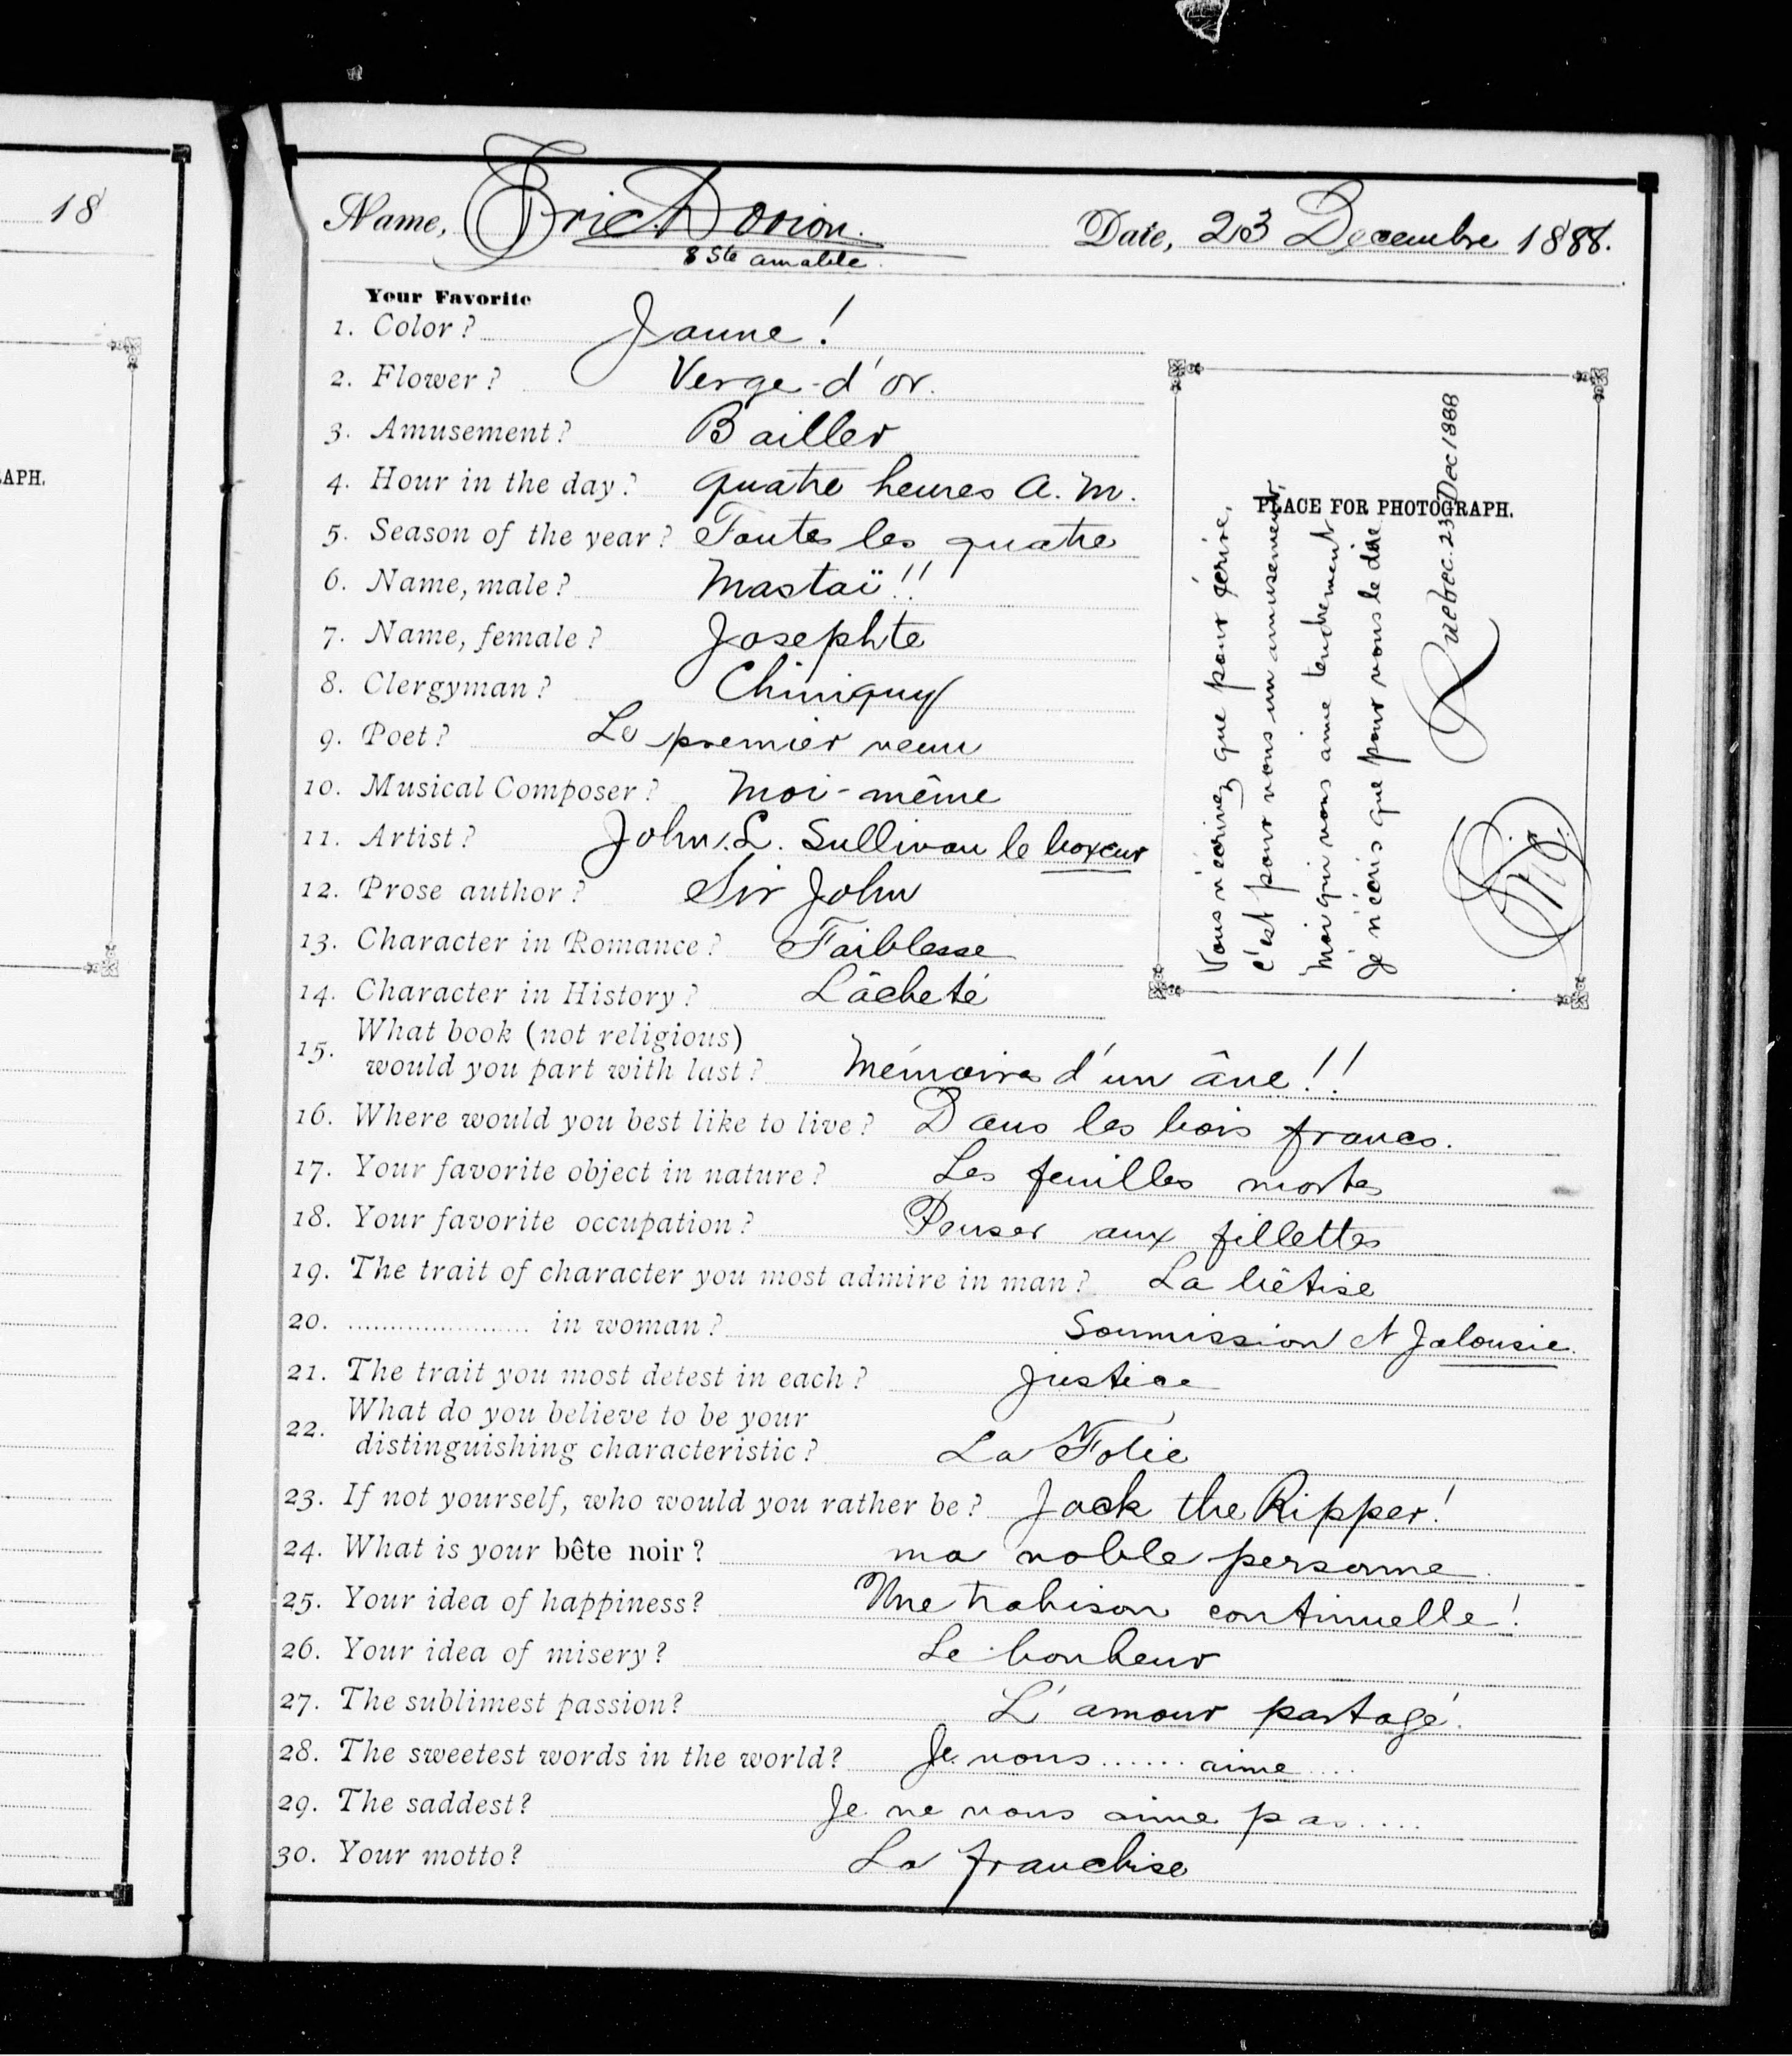 18
APH.
Name, Eric Dorion.
8 Ste amable
Date, 23 Decembre 1888.
Your Favorite
1. Color? Jaune!
2. Flower? Verge-d'or.
3. Amusement? Bailler
4. Hour in the day? quatre heures A.M.
5. Season of the year? Toutes les quatre
6. Name, male? Mastaï!!
7. Name, female? Josephte
8. Clergyman? Chiniquy
9. Poet? Le premier venu
10. Musical Composer? Moi-même
11. Artist? John. L. Sullivan le boxeur
12. Prose author? Sir John
13. Character in Romance? Faiblesse
14. Character in History? Lâcheté
15. What book (not religious)
would you part with last? Mémoires d'un âne!!
16. Where would you best like to live? Dans les bois francs.
17. Your favorite object in nature? Les feuilles mortes
18. Your favorite occupation? Penser aux fillettes
19. The trait of character you most admire in man? La bêtise
20. ...................... in woman? Soumission et Jalousie.
21. The trait you most detest in each? Justice
22. What do you believe to be your
distinguishing characteristic? La Folie
23. If not yourself, who would you rather be? Jack the Ripper!
24. What is your bête noir? ma noble personne.
25. Your idea of happiness? Une trahison continuelle!
26. Your idea of misery? Le bonheur
27. The sublimest passion? L'amour partagé.
28. The sweetest words in the world? Je vous ...... aime ....
29. The saddest? Je ne vous aime pas....
30. Your motto? La franchise
PLACE FOR PHOTOGRAPH.
Vous n'écrivez que pour écrire,
c'est pour vous un amusement,
Moi qui vous aime tendrement
Je n'écris que pour vous le dire
Quebec. 23 Dec 1888
Eric.